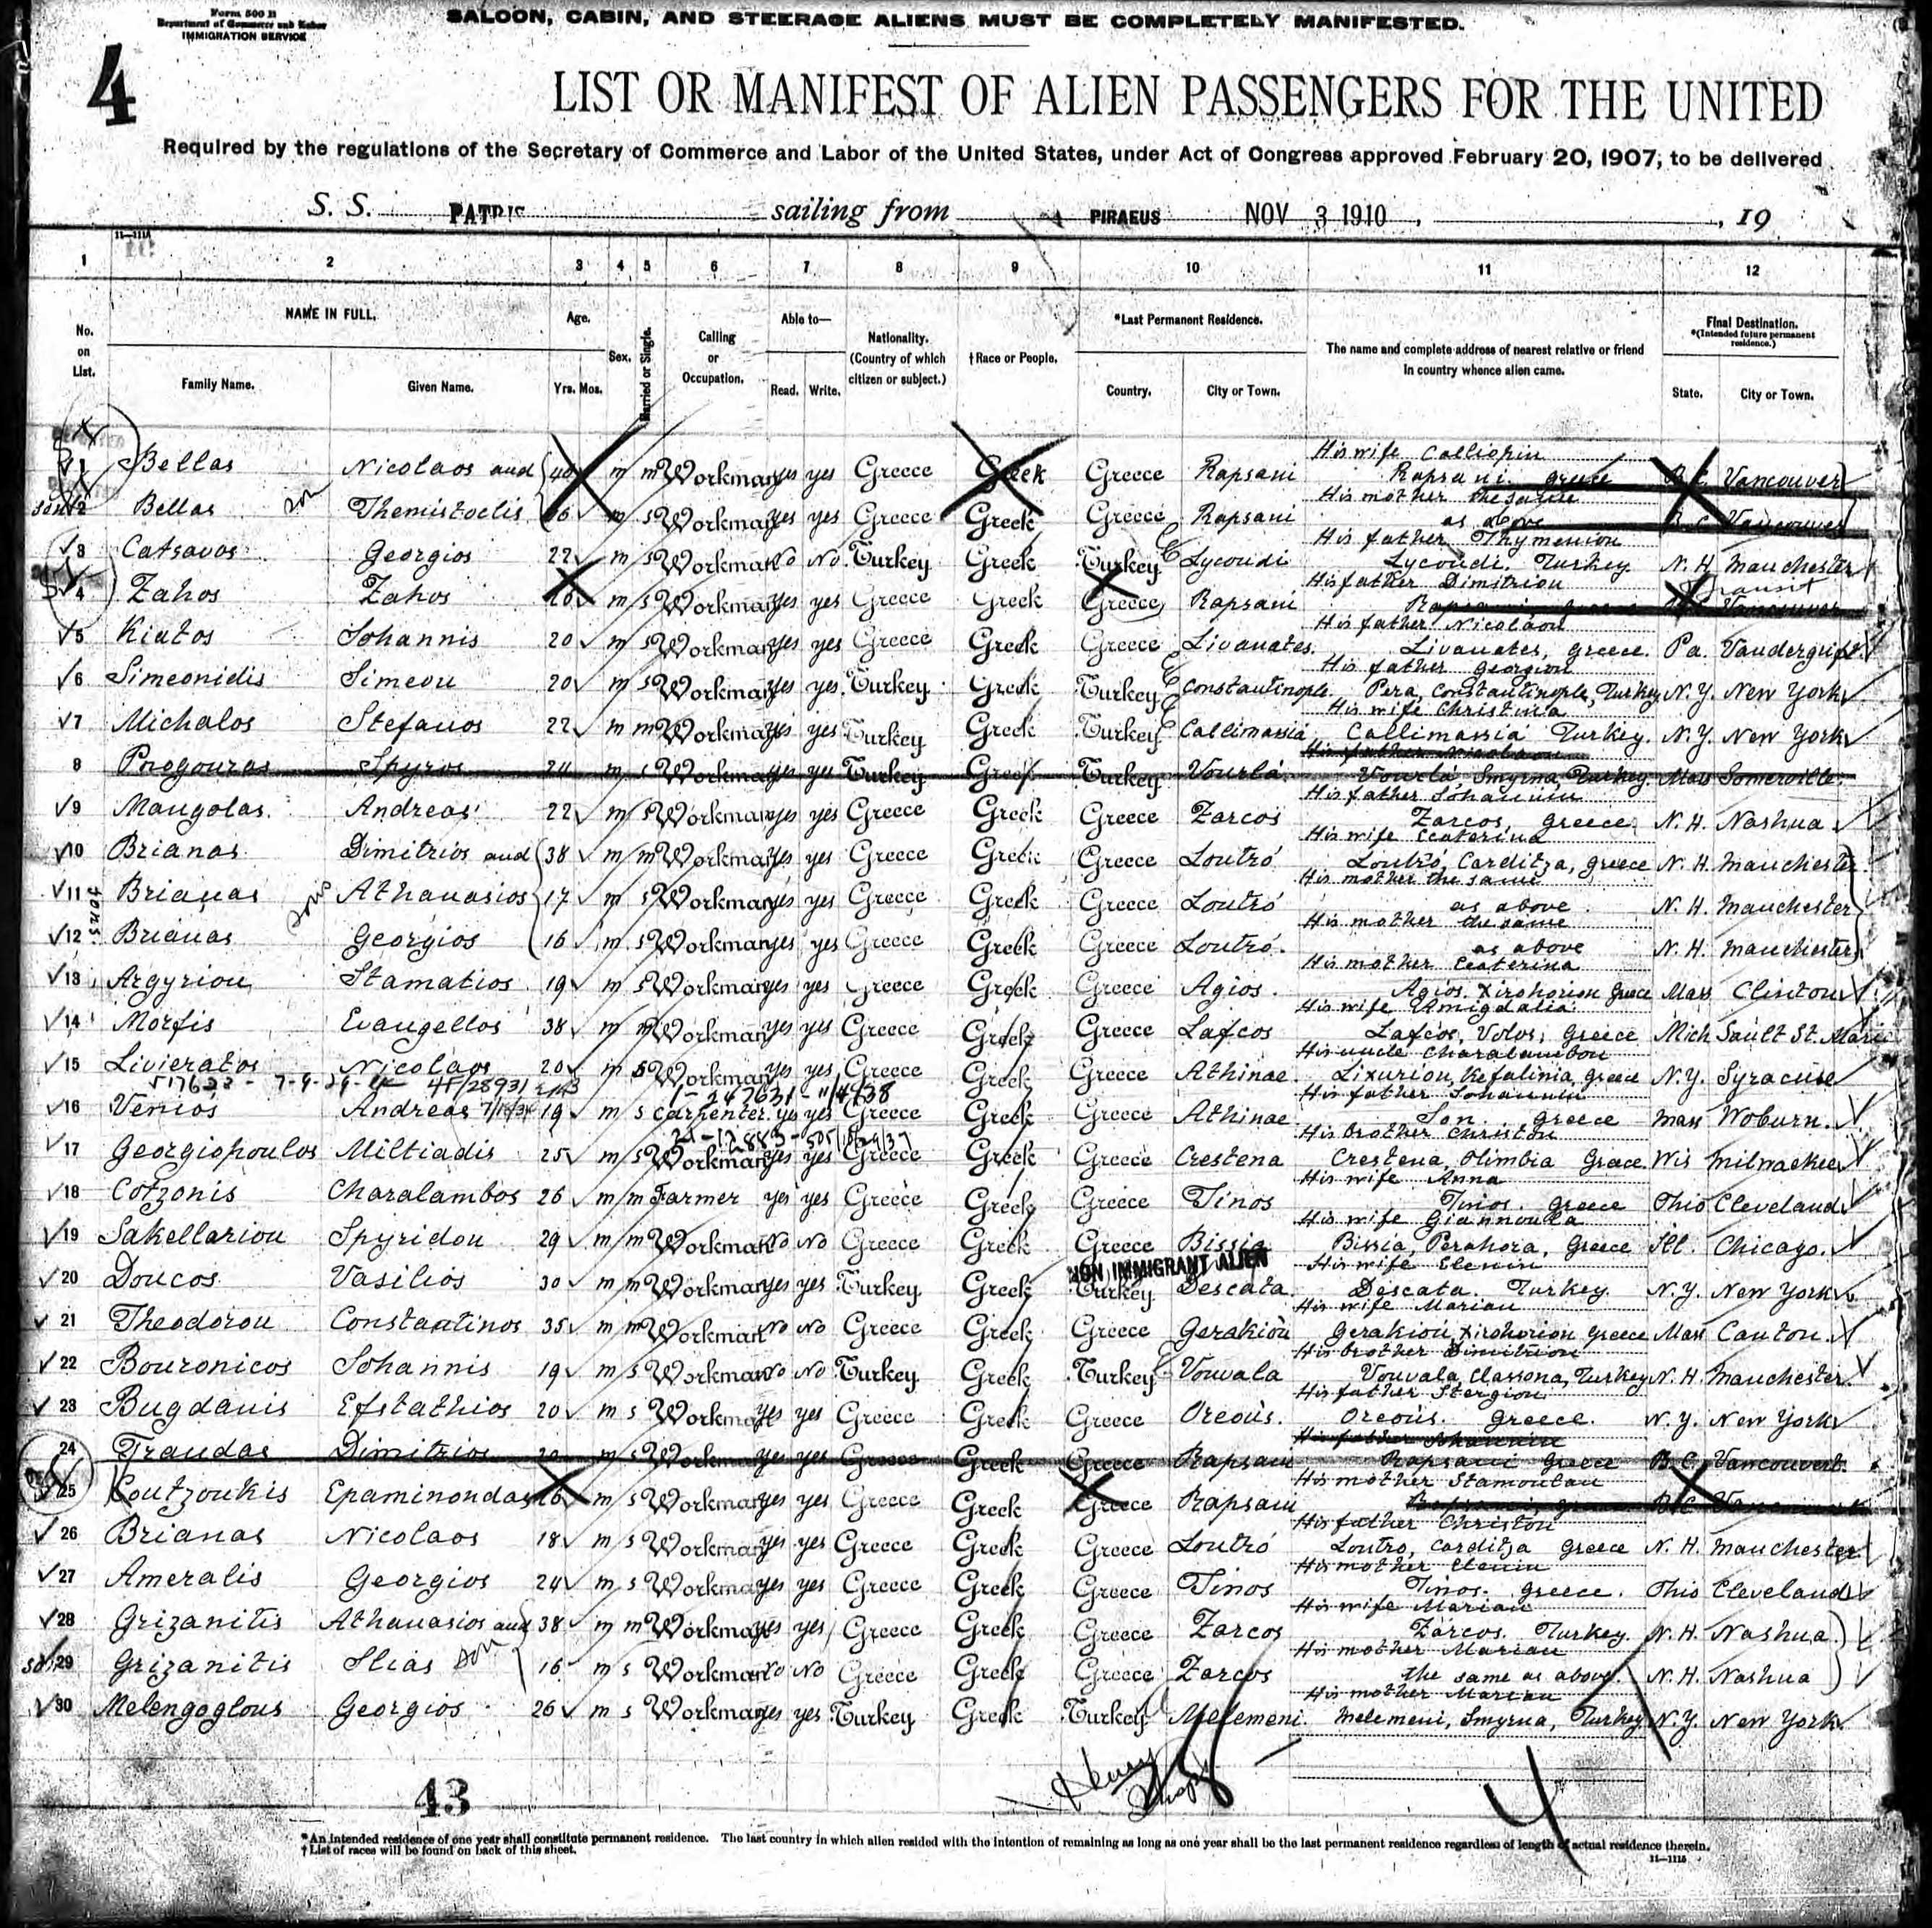 Form 500 B
Department of Commerce and Labor
IMMIGRATION SERVICE
SALOON, CABIN, AND STEERAGE ALIENS MUST BE COMPLETELY MANIFESTED.
4
LIST OR MANIFEST OF ALIEN PASSENGERS FOR THE UNITED
Required by the regulations of the Secretary of Commerce and Labor of the United States, under Act of Congress approved February 20, 1907, to be delivered
S. S. PATRIS sailing from PIRAEUS NOV 3 1910 , , 19
1 2 3 4 5 6 7 8 9 10 11 12
No. on List. NAME IN FULL. Family Name. Given Name. Age. Yrs. Mos. Sex. Married or Single. Calling or Occupation. Able to— Read. Write. Nationality. (Country of which citizen or subject.) †Race or People. *Last Permanent Residence. Country. City or Town. The name and complete address of nearest relative or friend in country whence alien came. Final Destination. *(Intended future permanent residence.) State. City or Town.
His wife Calliopin
1 Bellas Nicolaos and 40 m m Workman yes yes Greece Greek Greece Rapsani Rapsani greece B.C. Vancouver
His mother the same
2 Bellas son Themistoclis 16 m s Workman yes yes Greece Greek Greece Rapsani as above B.C. Vancouver
His father Thymeniou
3 Catsavos Georgios 22 m s Workman No No Turkey Greek Turkey Lycoudi Lycoudi. Turkey N.H. Manchester
His father Dimitriou Transit
4 Zahos Zahos 26 m s Workman yes yes Greece Greek Greece Rapsani Rapsani greece Vancouver
His father Nicolaou
5 Kiatos Iohannis 20 m s Workman yes yes Greece Greek Greece Livanates. Livanates, greece. Pa. Vandergrift
His father Georgiou
6 Simeonidis Simeon 20 m s Workman yes yes Turkey Greek Turkey Constantinople Pera, Constantinople, Turkey N.Y. New York
His wife Christina
7 Michalos Stefanos 22 m m Workman yes yes Turkey Greek Turkey Callimassia Callimassia Turkey. N.Y. New York
His father Nicolaou
8 Pnogouras Spyros 24 m s Workman yes yes Turkey Greek Turkey Vourla Vourla Smyrna, Turkey Mass Somerville
His father Iohannin
9 Mangolas Andreas 22 m s Workman yes yes Greece Greek Greece Zarcos Zarcos, greece. N.H. Nashua
His wife Ecaterina
10 Brianas Dimitrios and 38 m m Workman yes yes Greece Greek Greece Loutró Loutró, Carditza, greece N.H. Manchester
His mother the same
11 Brianas sons Athanasios 17 m s Workman yes yes Greece Greek Greece Loutró as above N.H. Manchester
His mother the same
12 Brianas Georgios 16 m s Workman yes yes Greece Greek Greece Loutró. as above N.H. Manchester
His mother Ecaterina
13 Argyriou Stamatios 19 m s Workman yes yes Greece Greek Greece Agios. Agios. Xirohorion Greece Mass Clinton
His wife Amigdalia
14 Morfis Evangellos 38 m m Workman yes yes Greece Greek Greece Lafcos Lafcos, Volos, greece Mich Sault St. Marie
His uncle Charalambou
15 Livieratos Nicolaos 20 m s Workman yes yes Greece Greek Greece Athinae Lixurion, Kefalinia, greece N.Y. Syracuse
His father Iohannin
16 Venios Andreas 19 m s Carpenter yes yes Greece Greek Greece Athinae greece Mass Woburn.
His brother Christou
17 Georgiopoulos Miltiadis 25 m s Workman yes yes Greece Greek Greece Crestena Crestena, Olimbia Greece Wis Milwaekee
His wife Anna
18 Cotzonis Charalambos 26 m m Farmer yes yes Greece Greek Greece Tinos Tinos. greece Ohio Cleveland
His wife Giannoula
19 Sakellariou Spyridon 29 m m Workman No No Greece Greek Greece Bissia Bissia, Perahora, greece Ill. Chicago.
NON IMMIGRANT ALIEN His wife Elenin
20 Doucos Vasilios 30 m m Workman yes yes Turkey Greek Turkey Descata Descata. Turkey. N.Y. New York
His wife Marian
21 Theodorou Constantinos 35 m m Workman No No Greece Greek Greece Gerakiou Gerakiou, Xirohorion Greece Mass Canton.
His brother Dimitriou
22 Bouronicos Iohannis 19 m s Workman No No Turkey Greek Turkey Vouvala Vouvala, Elassona, Turkey N.H. Manchester.
His father Stergiou
23 Bugdanis Efstathios 20 m s Workman yes yes Greece Greek Greece Oreoùs. Oreoùs. greece. N.Y. New York
His father Iohannin
24 Traudas Dimitrios 20 m s Workman yes yes Greece Greek Greece Rapsani Rapsani greece B.C. Vancouver
His mother Stamoulan
25 Coutzoukis Epaminondas 26 m s Workman yes yes Greece Greek Greece Rapsani Rapsani greece B.C. Vancouver
His father Christou
26 Brianas Nicolaos 18 m s Workman yes yes Greece Greek Greece Loutró Loutro, Carditza greece N.H. Manchester
His mother Elenin
27 Ameralis Georgios 24 m s Workman yes yes Greece Greek Greece Tinos Tinos. greece. Ohio Cleveland
His wife Marian
28 Grizanitis Athanasios and 38 m m Workman yes yes Greece Greek Greece Zarcos Zarcos. Turkey N.H. Nashua
His mother Marian
29 Grizanitis Ilias son 16 m s Workman No No Greece Greek Greece Zarcos the same as above. N.H. Nashua
His mother Marian
30 Melengoglous Georgios 26 m s Workman yes yes Turkey Greek Turkey Melemeni. Melemeni, Smyrna, Turkey N.Y. New York
43
4
*An intended residence of one year shall constitute permanent residence. The last country in which alien resided with the intention of remaining as long as one year shall be the last permanent residence regardless of length of actual residence therein.
†List of races will be found on back of this sheet.
11—1115